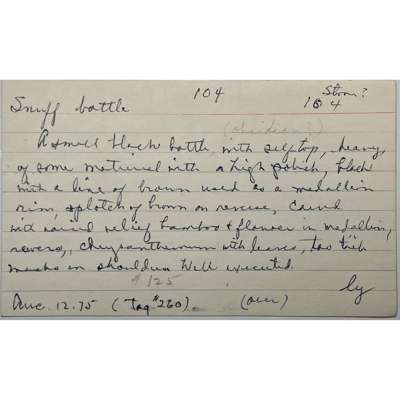 104
Stone?
104
Snuff bottle
(obsidian?)
A small black bottle, with self top, heavy,
of some material with a high polish, black
with a line of brown used as a medallion
rim, splotch of brown on reverse, carved
with raised relief bamboo & flower in medallion,
reverse, chrysanthemum with leaves,
masks on shoulders. Well executed.
$125
Auc. 12.75 (tag #260).
(over)